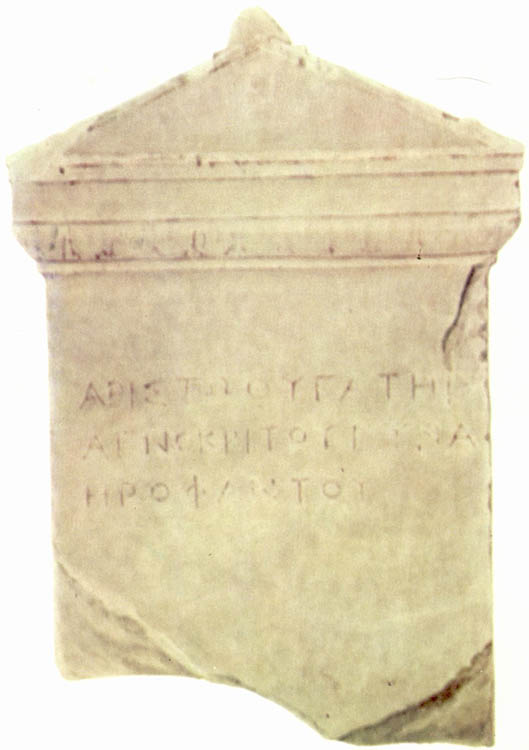 ΑΡΙΣΤΩΘΥΓΑΤΗΡ
ΑΓΝΟΚΡΙΤΟΥΓΥΝΑ
ΗΡΟΦΑΝΤΟΥ